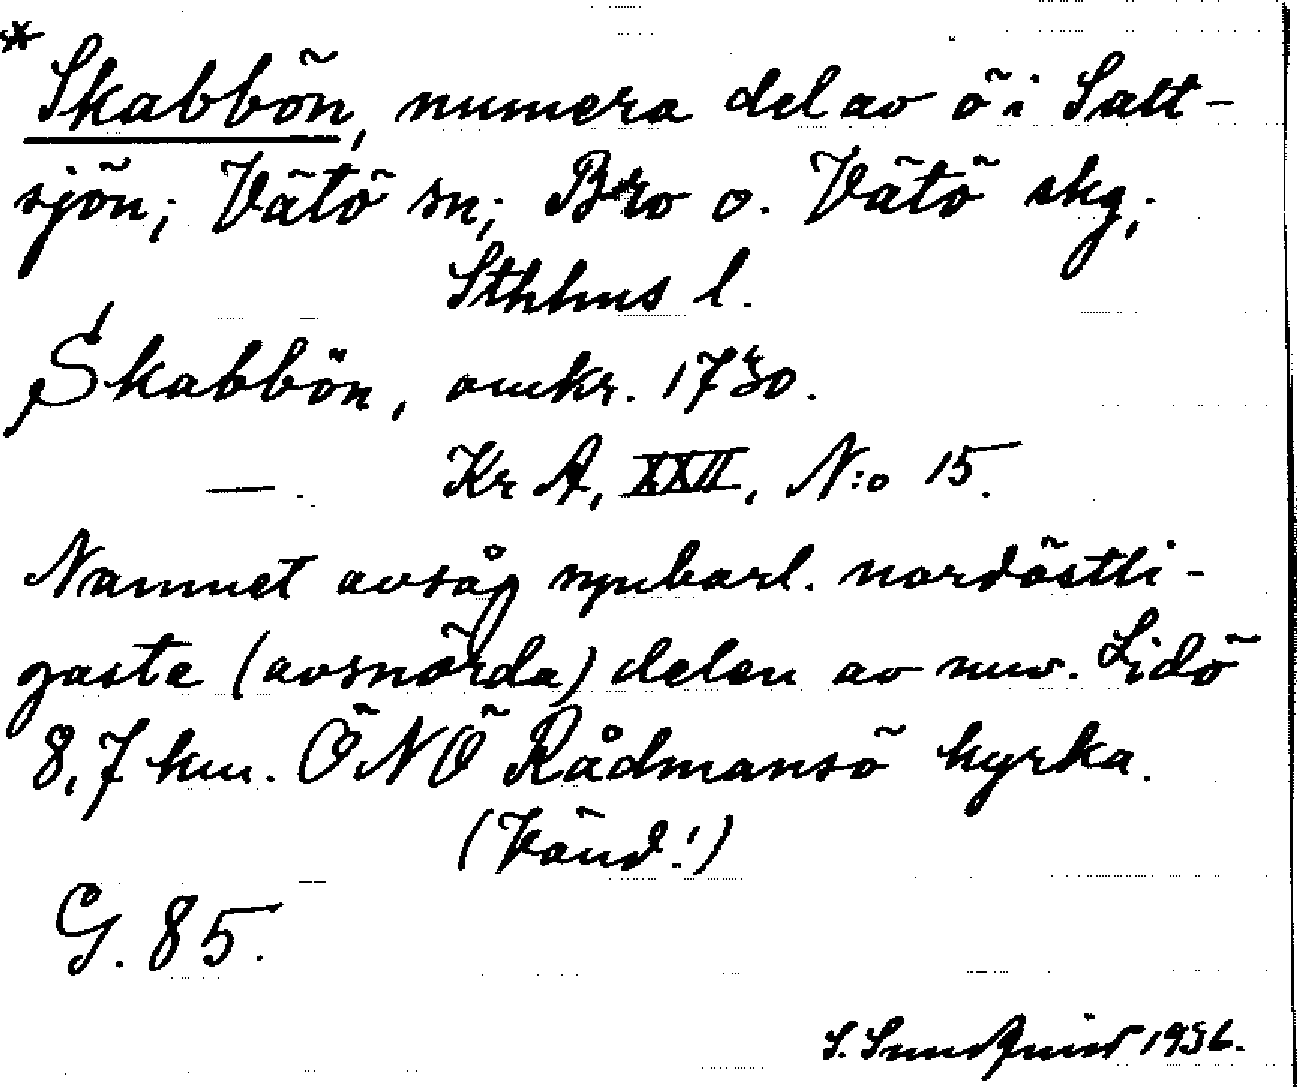 * Skabbön, numera del av ö i Salt-
sjön; Vätö sn; Bro o. Vätö skg;
Sthlms l.
Skabbön, omkr. 1730.
— . Kr A, XXII, N:o 15.
Namnet avsåg synbarl. nordöstli-
gaste (avsnörda) delen av nuv. Lidö
8,7 km. ÖNÖ Rådmansö kyrka.
(Vänd!)
G. 85.
S. Sundqvist 1936.